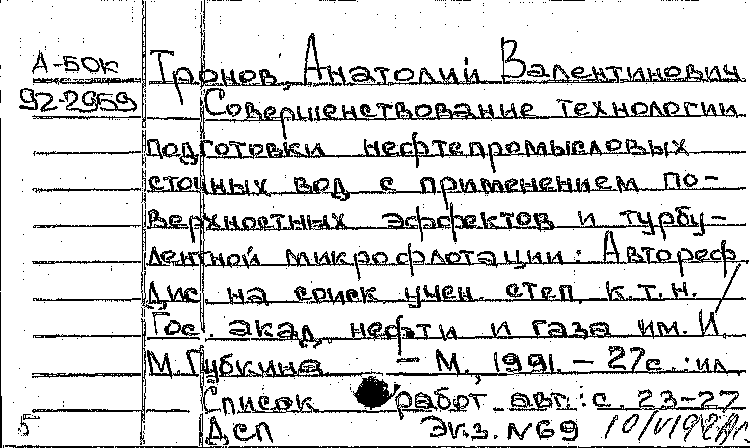 А-БОК
92-2959
Тронов, Анатолий Валентинович
Совершенствование технологии
подготовки нефтепромысловых
сточных вод с применением по-
верхностных эффектов и турбу-
лентной микрофлотации: Автореф
Дис. на соиск учен. степ. к.т.н. /
Гос. акад. нефти и газа им. И.
М. Губкина – М., 1991. – 27с. : ил
Список работ авт.: с. 23-27
5 ДСП Экз. №69